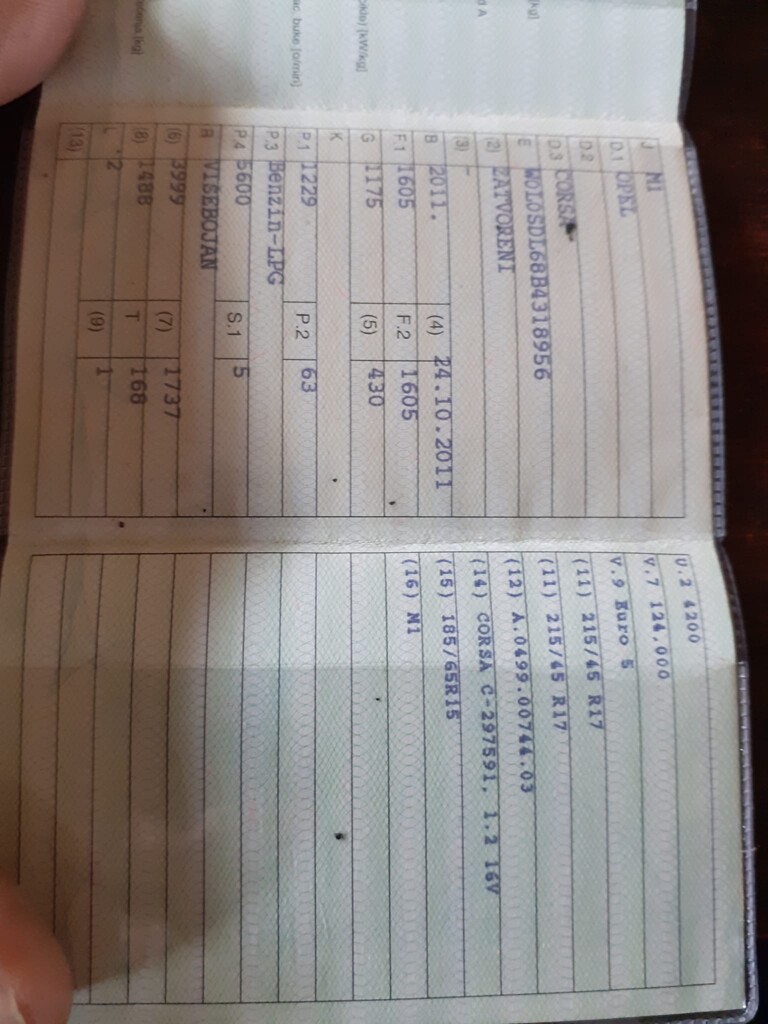 [kg]
g A
okle) [kW/kg]
ac. buke [o/min]
[kg]
J M1
D.1 OPEL
D.2
D.3 CORSA
E W0L0SDL68B4318956
(2) ZATVORENI
(3) -
B 2011. (4) 24.10.2011
F.1 1605 F.2 1605
G 1175 (5) 430
K
P.1 1229 P.2 63
P.3 Benzin-LPG
P.4 5600 S.1 5
R VIŠEBOJAN
(6) 3999 (7) 1737
(8) 1488 T 168
L 2 (9) 1
(13)
U.2 4200
V.7 124,000
V.9 Euro 5
(11) 215/45 R17
(11) 215/45 R17
(12) A.0499.00744.03
(14) CORSA C-297591, 1.2 16V
(15) 185/65R15
(16) M1